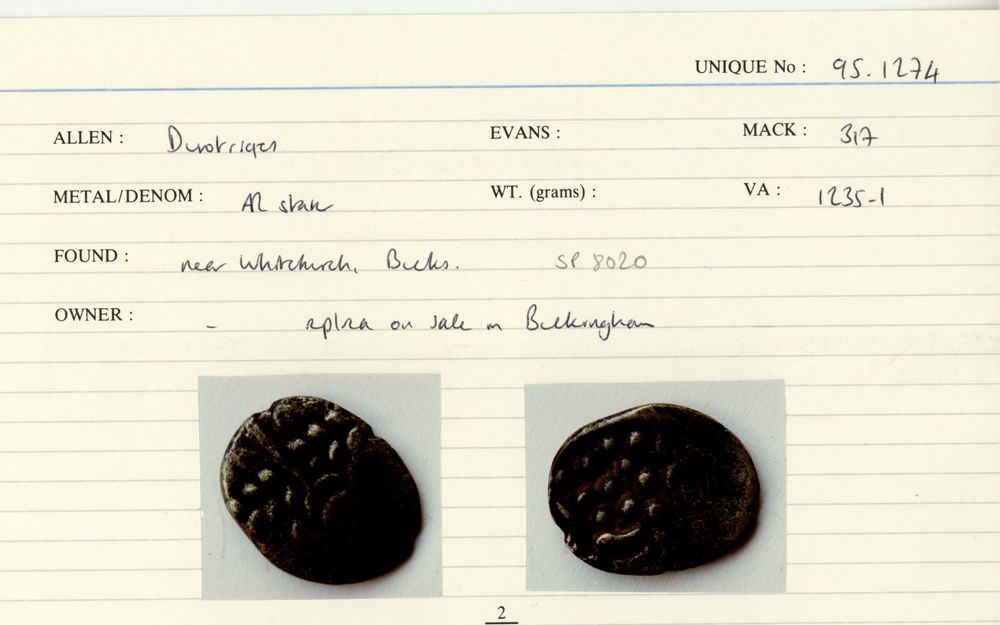 UNIQUE No : 95.1274
ALLEN : Durotriges EVANS : MACK : 317
METAL/DENOM : AR stat WT. (grams) : VA : 1235-1
FOUND : near Whitchurch, Bucks. SP 8020
OWNER : - on sale in Buckingham
2